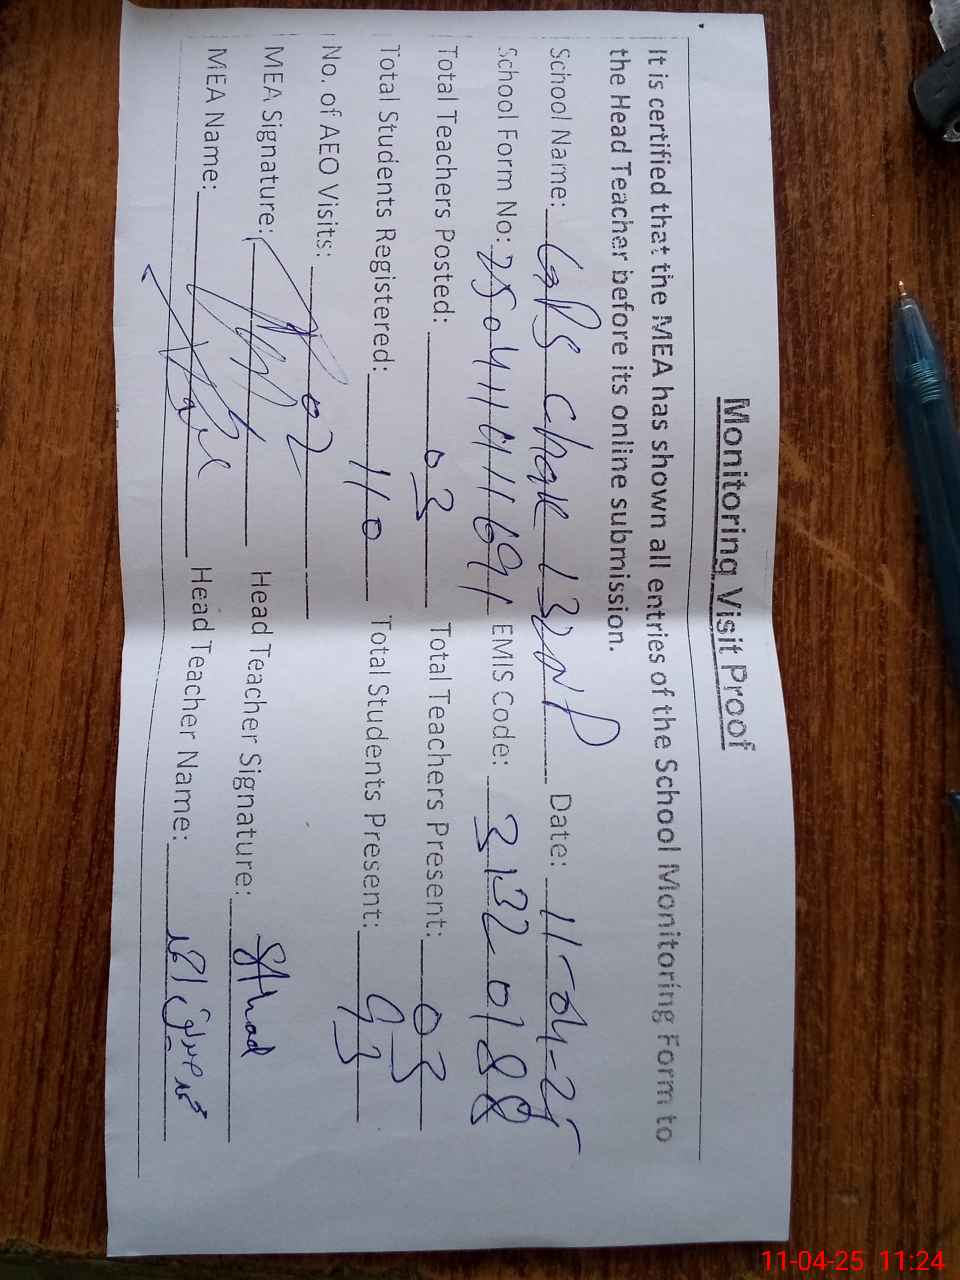 Monitoring Visit Proof
It is certified that the MEA has shown all entries of the School Monitoring Form to
the Head Teacher before its online submission.
School Name: GPS Chak 132NP Date: 11-04-25
School Form No: 250411411691 EMIS Code: 31320188
Total Teachers Posted: 03 Total Teachers Present: 03
Total Students Registered: 110 Total Students Present: 93
No. of AEO Visits: 02
MEA Signature: Head Teacher Signature:
MEA Name: Head Teacher Name: محمد صدیق احمد
11-04-25 11:24